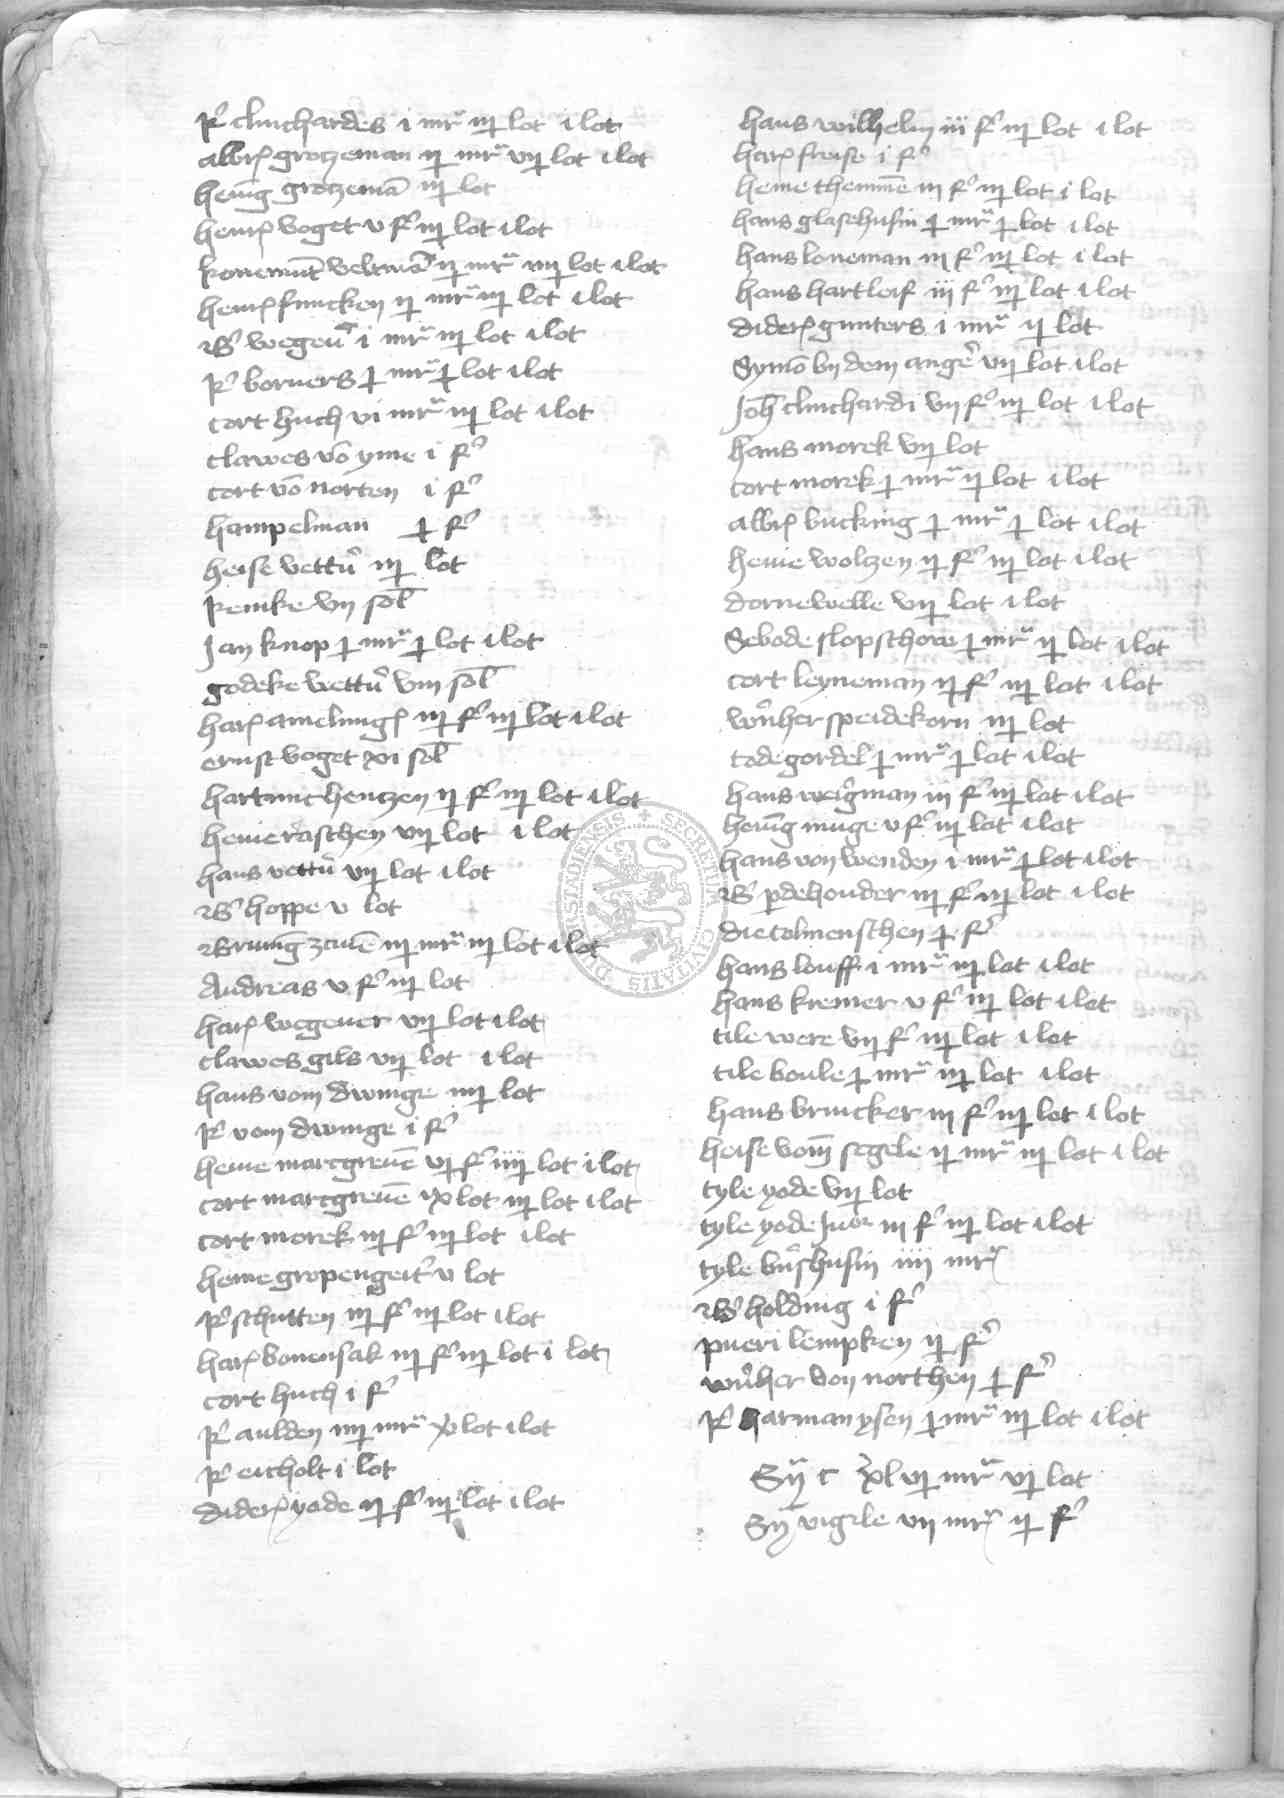 R' clinchardes i mr iij lot i lot
albr' grotzeman ij mr vij lot i lot
henīg grotzemā iij lot
henr' voget v f' iij lot i lot
konemūt veltmā ij mr iiij lot i lot
henr' fnucken ij mr iij lot i lot
W' wegen' i mr iij lot i lot
R' borners j mr j lot i lot
cort huch vi mr iij lot i lot
clawes vō yme i f'
cort vō norten i f'
hampelman j f'
heise vettū iij lot
Remke vij sol
Jan knop j mr j lot i lot
godeke vettū viij sol
har' amelung' iij f' iij lot i lot
ernst voget xi sol
hartmut hentzen ij f' iij lot i lot
heine raschen vij lot i lot
hans vettū vij lot i lot
W' hoppe v lot
Brunīg zcuē iij mr iij lot i lot
Andreas v f' iij lot
har' wegener vij lot i lot
clawes gils vij lot i lot
hans vom dwinge iiij lot
R' vom dwinge i f'
heine marcgreuē vj f' iiij lot i lot
cort marcgreuē ix lot iij lot i lot
cort morek iij f' iij lot i lot
heine gropengeit' v lot
R' schutten iij f' iij lot i lot
har' bonensak iij f' iij lot i lot
cort huch i f'
R' aulden iiij mr x lot i lot
R' eicholt i lot
dider' yode ij f' iij lot i lot
hans wilhelm iij f' iij lot i lot
har' freise i f'
heine themmē iij f' iij lot i lot
hans glasehusin j mr j lot i lot
hans loneman iij f' iij lot i lot
hans hartleif iij f' iij lot i lot
dider' gunters i mr ij lot
Symō by dem anger' vij lot i lot
Joh clinchardi vij f' iij lot i lot
hans morek vij lot
cort morek j mr ij lot i lot
albr' bucking j mr j lot i lot
heine woltzen ij f' iij lot i lot
dornewelle vij lot i lot
Sebode slopschowe j mr ij lot i lot
cort leyneman ij f' iij lot i lot
wn'her speidekorn iij lot
tode gordel j mr j lot i lot
hans weigman iij f' iij lot i lot
henīg muge v f' iij lot i lot
hans von wenden i mr j lot i lot
W' pdehonder iij f' iij lot i lot
die tolmenschen j f'
hans louff i mr iij lot i lot
hans kremer v f' iij lot i lot
tile were vij f' iij lot i lot
tile boule j mr iij lot i lot
hans brucker iij f' iij lot i lot
heise vom segele ij mr iij lot i lot
tyle yode vij lot
tyle yode Juor iij f' iij lot i lot
tyle bu'shusin iiij mr
W' holdung i f'
pueri lempken ij f'
wn'her von northen j f'
R' harman ysen j mr iij lot i lot
Sm c xlvj mr vj lot
Sm vigile vij mr ij f'